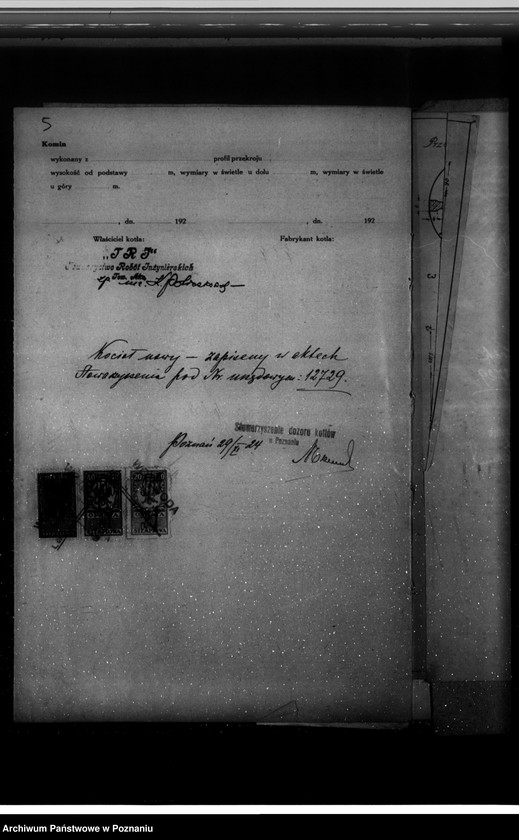 5
Komin
wykonany z profil przekroju
wysokość od podstawy m, wymiary w świetle u dołu m, wymiary w świetle
u góry m.
, dn. 192 , dn. 192
Właściciel kotła: Fabrykant kotła:
„TRI"
Towarzystwo Robót Inżynierskich
Tow. Akc.
Kocieł nowy – zapisany w aktach
Stowarzyszenia pod Nr. urzędowym: 12729.
Stowarzyszenie dozoru kotłów
w Poznaniu
Poznań 29/II 24
Archiwum Państwowe w Poznaniu